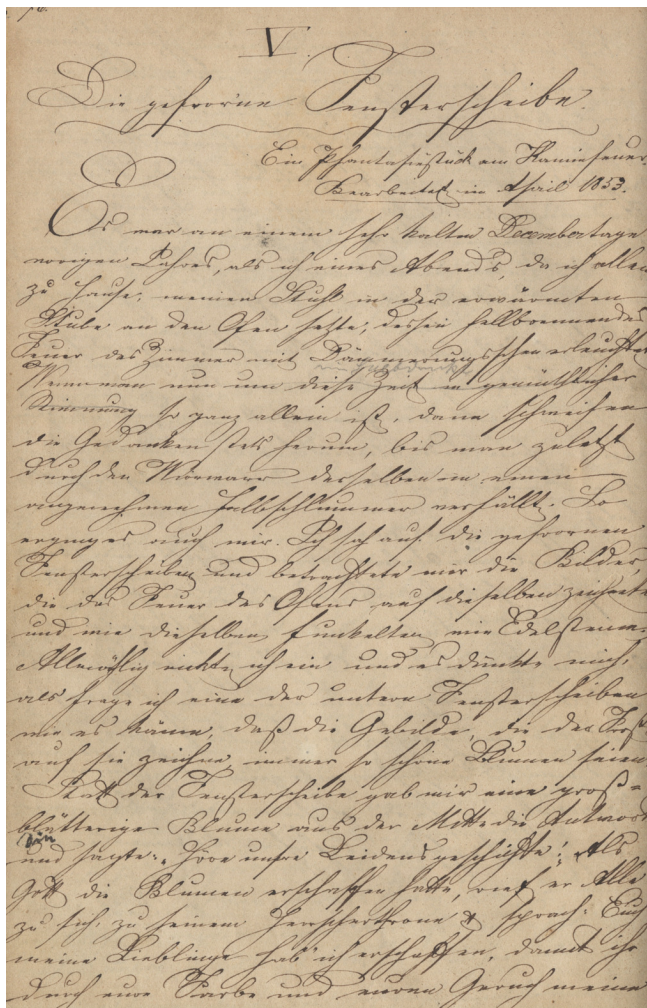 V.
Die gefrorne Fensterscheibe.
Ein Phantasiestück am Kaminfeuer.
Bearbeitet im April 1853.
Es war an einem sehr kalten Decembertage
vorigen Jahres, als ich eines Abends, da ich allein
zu Hause, meinen Stuhl in der erwärmten
Stube an den Ofen setzte, dessen hellbrennendes
Feuer das Zimmer mit Dämmerungsschein erleuchtete
Wenn man nun um diese Zeit in gemüthlicher
Stimmung so ganz allein ist, dann schweifen
die Gedanken stets herum, bis man zuletzt
durch den Wirrwarr derselben in einen
angenehmen Halbschlummer verfällt. So
erging es auch mir. Ich sah auf die gefrornen
Fensterscheiben und betrachtete mir die Bilder,
die das Feuer des Ofens auf dieselben zeichnete
und wie dieselben funkelten wie Edelsteine.
Allmählig nickte ich ein und es dünkte mich,
als frage ich eine der untern Fensterscheiben
wie es käme, daß die Gebilde, die der Frost
auf sie zeichne, immer so schöne Blumen seien
Statt der Fensterscheibe gab mir eine groß=
blätterige Blume aus der Mitte die Antwort
und sagte: „Höre unsre Leidensgeschichte! Als
Gott die Blumen erschaffen hatte, rief er Alle
zu sich, zu seinem Herrscherthrone & sprach: Euch
meine Lieblinge hab' ich erschaffen, damit ihr
durch eure Farbe und euren Geruch meine